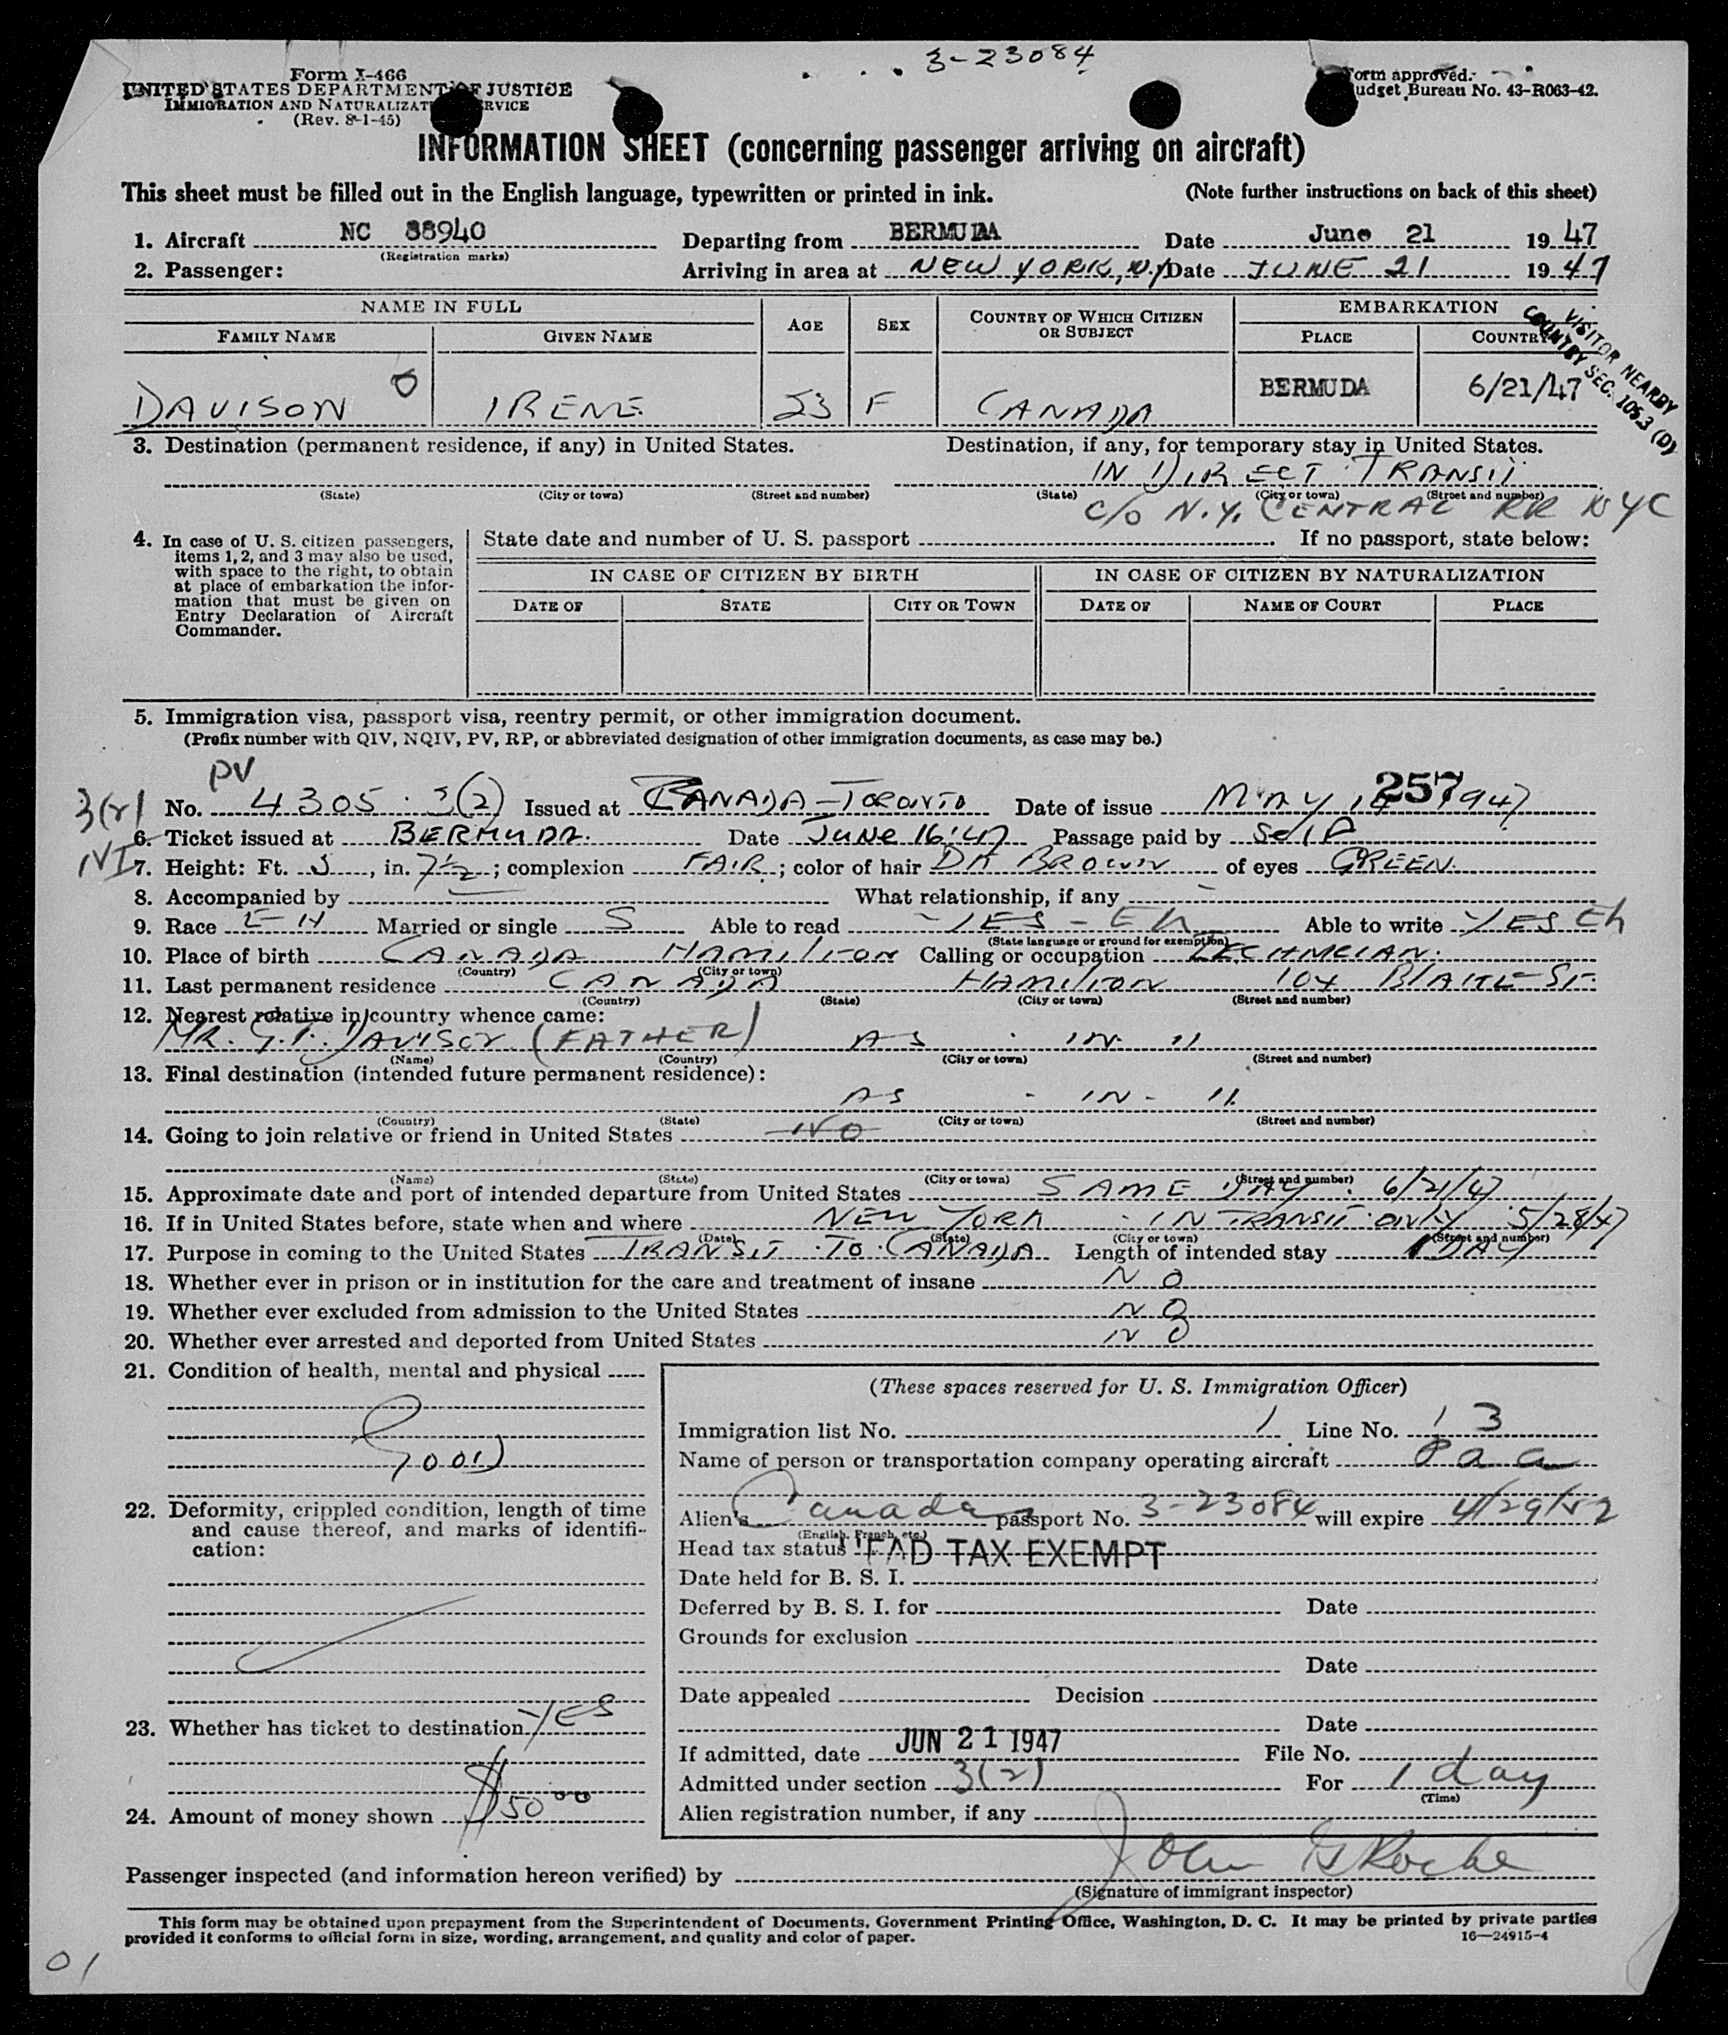 3-23084
Form I-466
UNITED STATES DEPARTMENT OF JUSTICE
IMMIGRATION AND NATURALIZATION SERVICE
(Rev. 8-1-45)
Form approved.
Budget Bureau No. 43-R063-42.
INFORMATION SHEET (concerning passenger arriving on aircraft)
This sheet must be filled out in the English language, typewritten or printed in ink. (Note further instructions on back of this sheet)
1. Aircraft NC 88940 Departing from BERMUDA Date June 21 1947
(Registration marks)
2. Passenger: Arriving in area at NEW YORK, N.Y. Date JUNE 21 1947
NAME IN FULL AGE SEX COUNTRY OF WHICH CITIZEN OR SUBJECT EMBARKATION
FAMILY NAME GIVEN NAME PLACE COUNTRY
VISITOR NEARBY
COUNTRY SEC. 10
DAVISON IRENE 53 F CANADA BERMUDA 6/21/47
3. Destination (permanent residence, if any) in United States. Destination, if any, for temporary stay in United States.
IN DIRECT TRANSIT
(State) (City or town) (Street and number) (State) (City or town) (Street and number)
C/O N.Y. CENTRAL RR NYC
4. In case of U. S. citizen passengers, items 1, 2, and 3 may also be used, with space to the right, to obtain at place of embarkation the information that must be given on Entry Declaration of Aircraft Commander.
State date and number of U. S. passport If no passport, state below:
IN CASE OF CITIZEN BY BIRTH IN CASE OF CITIZEN BY NATURALIZATION
DATE OF STATE CITY OR TOWN DATE OF NAME OF COURT PLACE
5. Immigration visa, passport visa, reentry permit, or other immigration document.
(Prefix number with QIV, NQIV, PV, RP, or abbreviated designation of other immigration documents, as case may be.)
PV
257
No. 4305 3(2) Issued at CANADA-TORONTO Date of issue MAY 1947
6. Ticket issued at BERMUDA. Date June 16'47 Passage paid by Self
7. Height: Ft. 5, in. 7½; complexion FAIR; color of hair DK BROWN of eyes GREEN.
8. Accompanied by — What relationship, if any —
9. Race EH Married or single S Able to read YES - Eh Able to write YES Eh
(State language or ground for exemption)
10. Place of birth CANADA HAMILTON Calling or occupation TECHNICIAN.
(Country) (City or town)
11. Last permanent residence CANADA HAMILTON 104 BLAKE ST.
(Country) (State) (City or town) (Street and number)
12. Nearest relative in country whence came:
MR. G.F. DAVISON (FATHER) AS IN 11
(Name) (Country) (City or town) (Street and number)
13. Final destination (intended future permanent residence):
AS - IN - 11.
(Country) (State) (City or town) (Street and number)
14. Going to join relative or friend in United States NO
(Name) (State) (City or town) (Street and number)
15. Approximate date and port of intended departure from United States SAME DAY. 6/21/47
16. If in United States before, state when and where NEW YORK - IN TRANSIT ONLY 5/28/47
(Date) (State) (City or town) (Street and number)
17. Purpose in coming to the United States TRANSIT TO CANADA Length of intended stay 1 DAY
18. Whether ever in prison or in institution for the care and treatment of insane NO
19. Whether ever excluded from admission to the United States NO
20. Whether ever arrested and deported from United States NO
21. Condition of health, mental and physical
GOOD
22. Deformity, crippled condition, length of time and cause thereof, and marks of identification:
23. Whether has ticket to destination YES
24. Amount of money shown $50 00
(These spaces reserved for U. S. Immigration Officer)
Immigration list No. 1 Line No. 13
Name of person or transportation company operating aircraft P a a
Alien's Canada passport No. 3-23084 will expire 4/29/52
(English, French, etc.)
Head tax status HEAD TAX EXEMPT
Date held for B. S. I.
Deferred by B. S. I. for Date
Grounds for exclusion
Date
Date appealed Decision
Date
If admitted, date JUN 21 1947 File No.
Admitted under section 3(2) For 1 day
(Time)
Alien registration number, if any
Passenger inspected (and information hereon verified) by John G Roche
(Signature of immigrant inspector)
This form may be obtained upon prepayment from the Superintendent of Documents, Government Printing Office, Washington, D. C. It may be printed by private parties
provided it conforms to official form in size, wording, arrangement, and quality and color of paper. 16—24915-4
01